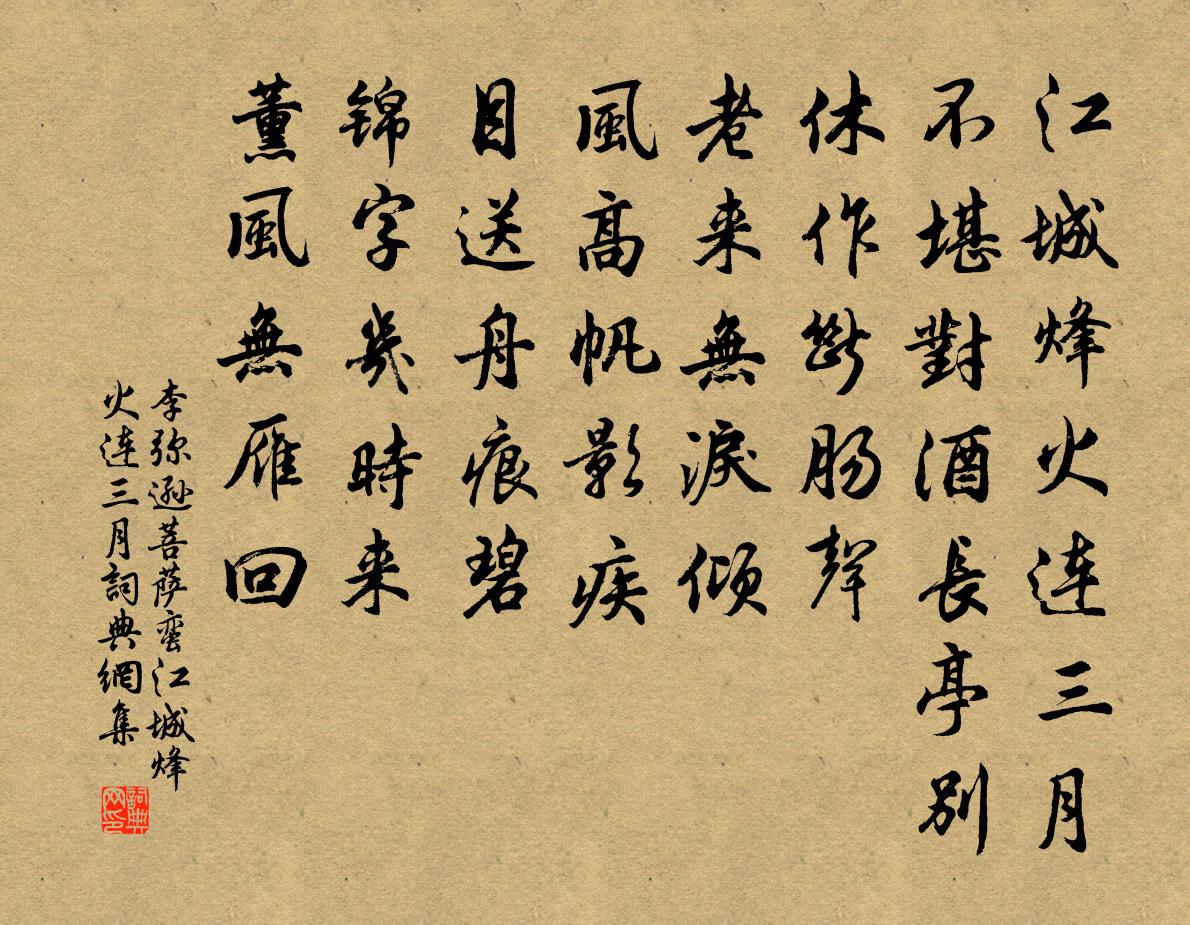 江城烽火连三月
不堪對酒長亭别
休作斷肠聲
老来無淚倾
風高帆影疾
目送舟痕碧
锦字幾時来
薰風無雁回
李弥逊菩萨蛮江城烽
火连三月詞典網集
詞典网印